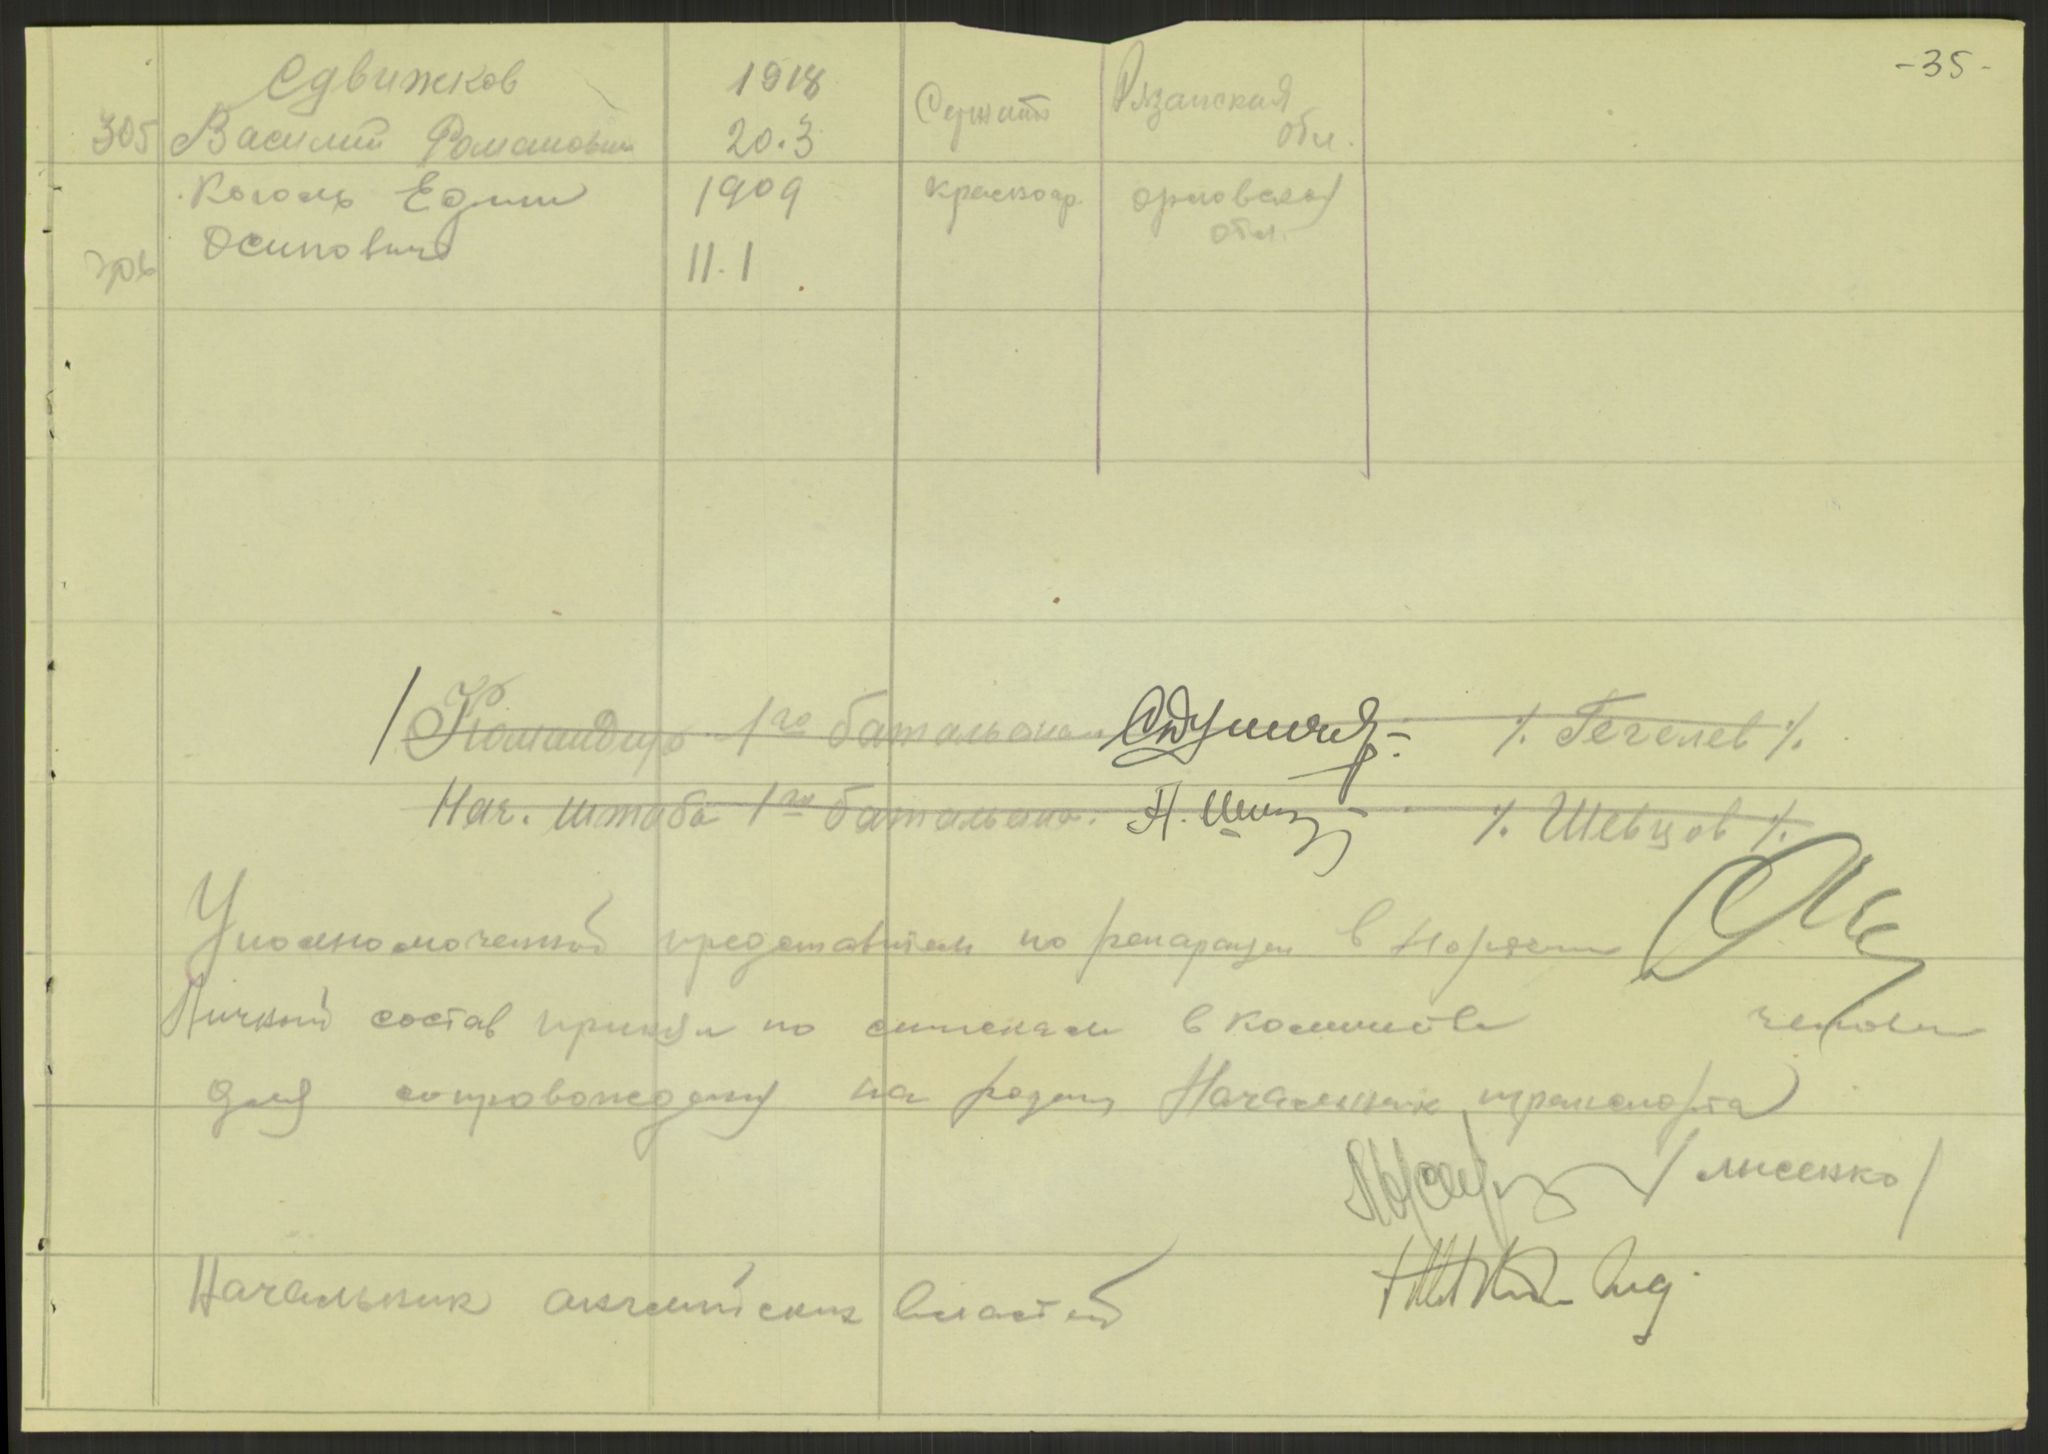 -35-
Сдвижков 1918 Сержант Рязанская
305 Василий Романович 20.3 обл.
Коголь Един 1909 красноар. орловская
306 Осипович 11.1 обл.
Командир 1го батальона /. Гегелев /.
Нач. штаба 1го батальона. Н. /. Шевцов /.
Уполномоченный представитель по репарации в Норвегии
Личный состав принял по спискам в количестве человек
для сопровождения на родину Начальник транспорта
/ лисенко /
Начальник английских властей